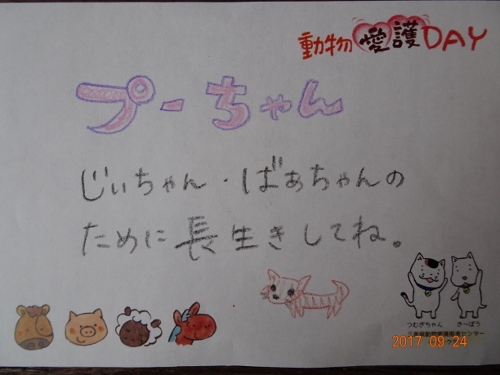 動物愛護DAY
プーちゃん
じぃちゃん・ばぁちゃんの
ために長生きしてね。
つむぎちゃん
さ〜ぼう
2017 09 24